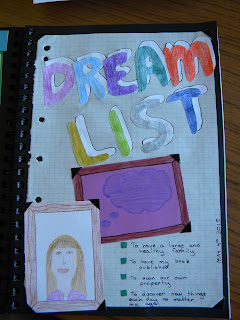 DREAM
LIST
To have a large and
healthy family
To have my book
published
To own our own
property
To discover new things
each day no matter
my age
MAY 4TH 2010